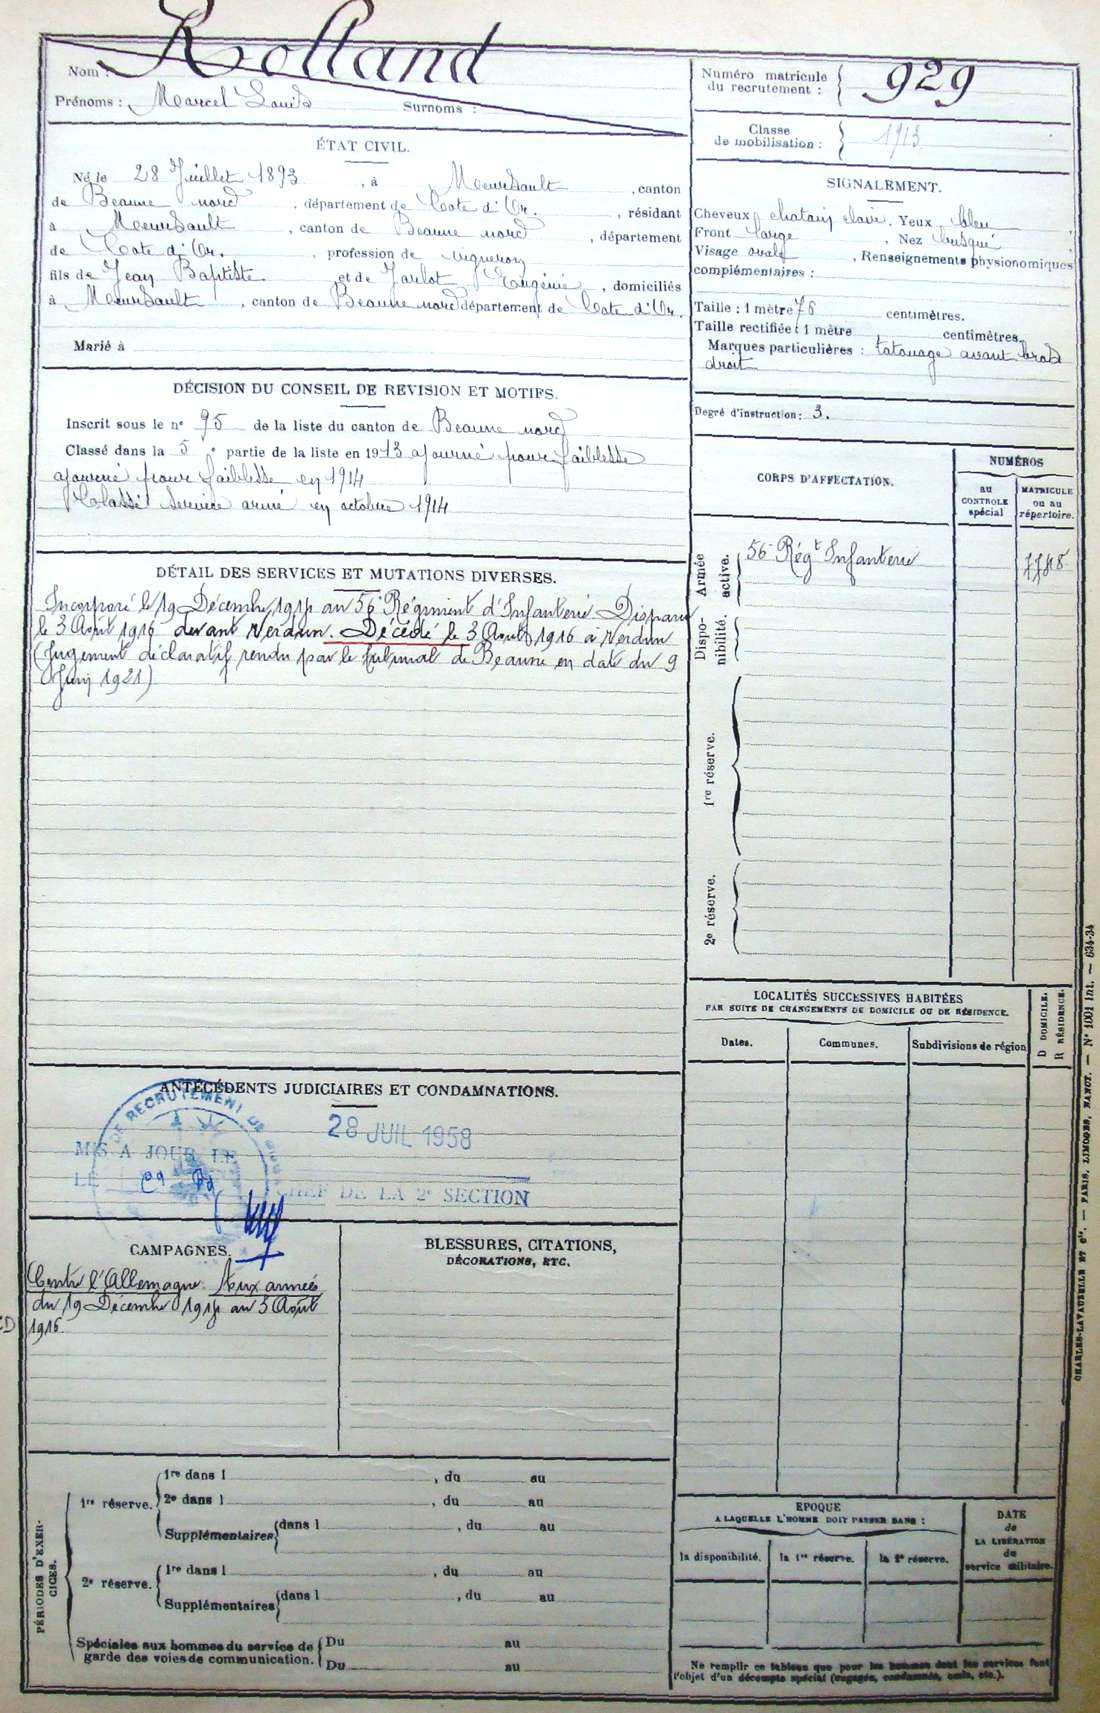 Nom : Rolland
Prénoms : Marcel Louis Surnoms :
Numéro matricule du recrutement : 929
Classe de mobilisation : 1913
ÉTAT CIVIL.
Né le 28 Juillet 1893, à Meursault, canton
de Beaune nord, département de Cote d'Or, résidant
à Meursault, canton de Beaune nord, département
de Cote d'Or, profession de vigneron
fils de Jean Baptiste et de Jarlot Eugénie, domiciliés
à Meursault, canton de Beaune nord département de Cote d'Or.
Marié à
SIGNALEMENT.
Cheveux chatain clair. Yeux bleu
Front large, Nez busqué
Visage ovale, Renseignements physionomiques
complémentaires :
Taille : 1 mètre 76 centimètres.
Taille rectifiée : 1 mètre centimètres.
Marques particulières : tatouage avant bras
droit
Degré d'instruction : 3.
DÉCISION DU CONSEIL DE REVISION ET MOTIFS.
Inscrit sous le n° 95 de la liste du canton de Beaune nord
Classé dans la 5e partie de la liste en 1913 ajourné pour faiblesse
ajourné pour faiblesse en 1914
Classé service armé en octobre 1914
CORPS D'AFFECTATION.
NUMÉROS
au CONTROLE spécial
MATRICULE ou au répertoire.
Armée active.
56e Régt Infanterie
Disponibilité.
1re réserve.
2e réserve.
DÉTAIL DES SERVICES ET MUTATIONS DIVERSES.
Incorporé le 19 Décembre 1914 au 56e Régiment d'Infanterie Disparu
le 3 Août 1916 devant Verdun. Décédé le 3 Août 1916 à Verdun
(Jugement déclaratif rendu par le tribunal de Beaune en date du 9
Juin 1921)
LOCALITÉS SUCCESSIVES HABITÉES
PAR SUITE DE CHANGEMENTS DE DOMICILE OU DE RÉSIDENCE.
Dates.
Communes.
Subdivisions de région
D DOMICILE.
R RÉSIDENCE.
ANTÉCÉDENTS JUDICIAIRES ET CONDAMNATIONS.
DE RECRUTEMENT DE
28 JUIL 1958
MIS A JOUR LE
LE CHEF DE LA 2e SECTION
CAMPAGNES.
Contre l'Allemagne. Aux armées
du 19 Décembre 1914 au 3 Août
1916.
BLESSURES, CITATIONS,
DÉCORATIONS, ETC.
PÉRIODES D'EXERCICES.
1re réserve.
1re dans l , du au
2e dans l , du au
Supplémentaires dans l , du au
2e réserve.
1re dans l , du au
Supplémentaires dans l , du au
Spéciales aux hommes du service de
garde des voies de communication.
Du au
Du au
EPOQUE
A LAQUELLE L'HOMME DOIT PASSER DANS :
la disponibilité.
la 1re réserve.
la 2e réserve.
DATE
de
LA LIBÉRATION
du
service militaire.
Ne remplir ce tableau que pour les hommes dont les services font
l'objet d'un décompte spécial (engagés, condamnés, omis, etc.).
CHARLES-LAVAUZELLE ET Cie. — PARIS, LIMOGES, NANCY. — N° 1001 Int. — 634-34